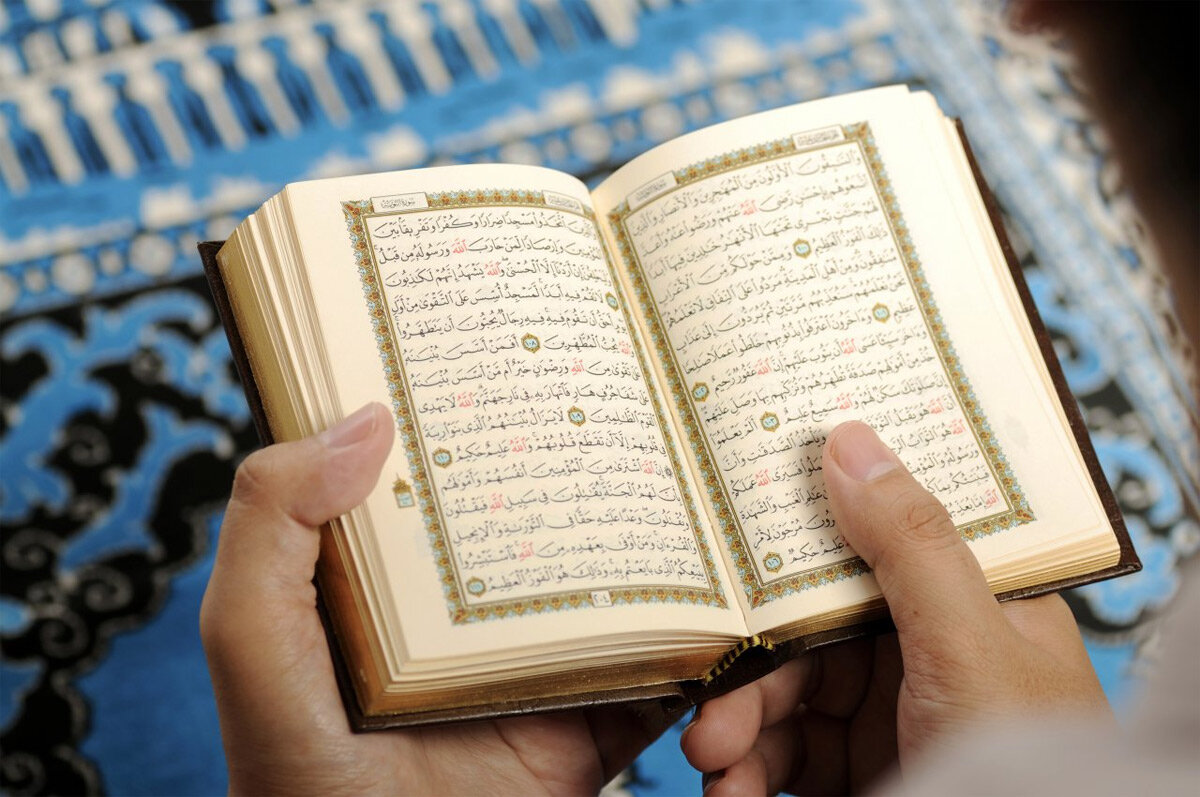 وَٱلسَّٰبِقُونَ ٱلْأَوَّلُونَ مِنَ ٱلْمُهَٰجِرِينَ وَٱلْأَنصَارِ وَٱلَّذِينَ
ٱتَّبَعُوهُم بِإِحْسَٰنٍ رَّضِىَ ٱللَّهُ عَنْهُمْ وَرَضُوا۟ عَنْهُ وَأَعَدَّ
لَهُمْ جَنَّٰتٍ تَجْرِى تَحْتَهَا ٱلْأَنْهَٰرُ خَٰلِدِينَ فِيهَآ أَبَدًا
ذَٰلِكَ ٱلْفَوْزُ ٱلْعَظِيمُ ١٠٠ وَمِمَّنْ حَوْلَكُم مِّنَ ٱلْأَعْرَابِ
مُنَٰفِقُونَ وَمِنْ أَهْلِ ٱلْمَدِينَةِ مَرَدُوا۟ عَلَى ٱلنِّفَاقِ لَا تَعْلَمُهُمْ
نَحْنُ نَعْلَمُهُمْ سَنُعَذِّبُهُم مَّرَّتَيْنِ ثُمَّ يُرَدُّونَ إِلَىٰ عَذَابٍ
عَظِيمٍ ١٠١ وَءَاخَرُونَ ٱعْتَرَفُوا۟ بِذُنُوبِهِمْ خَلَطُوا۟ عَمَلًا صَٰلِحًا
وَءَاخَرَ سَيِّئًا عَسَى ٱللَّهُ أَن يَتُوبَ عَلَيْهِمْ إِنَّ ٱللَّهَ غَفُورٌ رَّحِيمٌ ١٠٢
خُذْ مِنْ أَمْوَٰلِهِمْ صَدَقَةً تُطَهِّرُهُمْ وَتُزَكِّيهِم بِهَا وَصَلِّ عَلَيْهِمْ
إِنَّ صَلَوٰتَكَ سَكَنٌ لَّهُمْ وَٱللَّهُ سَمِيعٌ عَلِيمٌ ١٠٣ أَلَمْ يَعْلَمُوٓا۟
أَنَّ ٱللَّهَ هُوَ يَقْبَلُ ٱلتَّوْبَةَ وَيَأْخُذُ ٱلصَّدَقَٰتِ وَأَنَّ
ٱللَّهَ هُوَ ٱلتَّوَّابُ فَسَيَرَى ٱللَّهُ عَمَلَكُمْ
وَرَسُولُهُۥ وَٱلْمُؤْمِنُونَ عَٰلِمِ ٱلْغَيْبِ وَٱلشَّهَٰدَةِ
فَيُنَبِّئُكُم بِمَا مُرْجَوْنَ لِأَمْرِ
ٱللَّهِ إِمَّا يُعَذِّبُهُمْ عَلِيمٌ حَكِيمٌ ١٠٦
سُورَةُ التَّوْبَةِ
وَٱلَّذِينَ ٱتَّخَذُوا۟ مَسْجِدًا ضِرَارًا وَكُفْرًا وَتَفْرِيقًۢا بَيْنَ
ٱلْمُؤْمِنِينَ وَإِرْصَادًا لِّمَنْ حَارَبَ ٱللَّهَ وَرَسُولَهُۥ مِن قَبْلُ
وَلَيَحْلِفُنَّ إِنْ أَرَدْنَآ إِلَّا ٱلْحُسْنَىٰ وَٱللَّهُ يَشْهَدُ إِنَّهُمْ لَكَٰذِبُونَ
١٠٧ لَا تَقُمْ فِيهِ أَبَدًا لَّمَسْجِدٌ أُسِّسَ عَلَى ٱلتَّقْوَىٰ مِنْ أَوَّلِ
يَوْمٍ أَحَقُّ أَن تَقُومَ فِيهِ فِيهِ رِجَالٌ يُحِبُّونَ أَن يَتَطَهَّرُوا۟
وَٱللَّهُ يُحِبُّ ٱلْمُطَّهِّرِينَ ١٠٨ أَفَمَنْ أَسَّسَ بُنْيَٰنَهُۥ
عَلَىٰ تَقْوَىٰ مِنَ ٱللَّهِ وَرِضْوَٰنٍ خَيْرٌ أَم مَّنْ أَسَّسَ بُنْيَٰنَهُۥ
عَلَىٰ شَفَا جُرُفٍ هَارٍ فَٱنْهَارَ بِهِۦ فِى نَارِ جَهَنَّمَ وَٱللَّهُ لَا يَهْدِى
ٱلْقَوْمَ ٱلظَّٰلِمِينَ ١٠٩ لَا يَزَالُ بُنْيَٰنُهُمُ ٱلَّذِى بَنَوْا۟ رِيبَةً
فِى قُلُوبِهِمْ إِلَّآ أَن تَقَطَّعَ قُلُوبُهُمْ وَٱللَّهُ عَلِيمٌ حَكِيمٌ ١١٠
إِنَّ ٱللَّهَ ٱشْتَرَىٰ مِنَ ٱلْمُؤْمِنِينَ أَنفُسَهُمْ وَأَمْوَٰلَهُم
بِأَنَّ لَهُمُ ٱلْجَنَّةَ يُقَٰتِلُونَ فِى سَبِيلِ ٱللَّهِ فَيَقْتُلُونَ
وَيُقْتَلُونَ وَعْدًا عَلَيْهِ حَقًّا فِى ٱلتَّوْرَىٰةِ وَٱلْإِنجِيلِ
وَٱلْقُرْءَانِ وَمَنْ أَوْفَىٰ بِعَهْدِهِۦ مِنَ ٱللَّهِ فَٱسْتَبْشِرُوا۟
بِبَيْعِكُمُ ٱلَّذِى بَايَعْتُم بِهِۦ وَذَٰلِكَ هُوَ ٱلْفَوْزُ ٱلْعَظِيمُ ١١١
٢٠٤